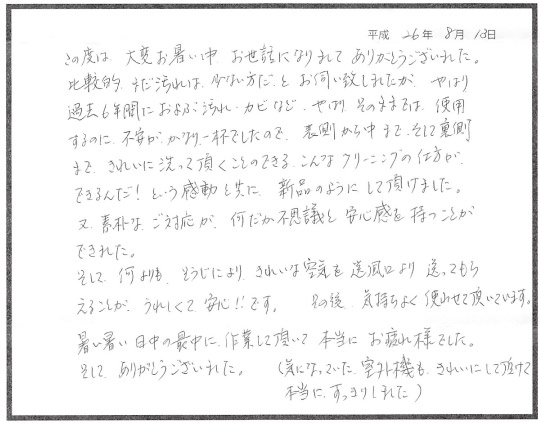 平成 26年 8月 13日
この度は、大変お暑い中 お世話になりまして ありがとうございました。
比較的、まだ汚れは、少ない方だ、と お伺い致しましたが、やはり
過去6年間における汚れ・カビなど、やはり そのままでは、使用
するのに、不安が、かなり一杯でしたので、表側から中まで、そして裏側
まで、きれいに洗って頂くことのできる、こんなクリーニングの仕方が、
できるんだ！という感動と共に、新品のようにして頂けました。
又、素朴な ご対応が、何だか不思議と安心感を持つことが
できました。
そして、何よりも、そうじにより、きれいな空気を送風口より 送ってもら
えることが、うれしくて、安心!!です。 その後、気持ちよく使わせて頂いています。
暑い暑い日中の最中に、作業して頂いて 本当に お疲れ様でした。
そして、ありがとうございました。 (気になっていた、室外機も、きれいにして頂けて
本当に、すっきりしました)